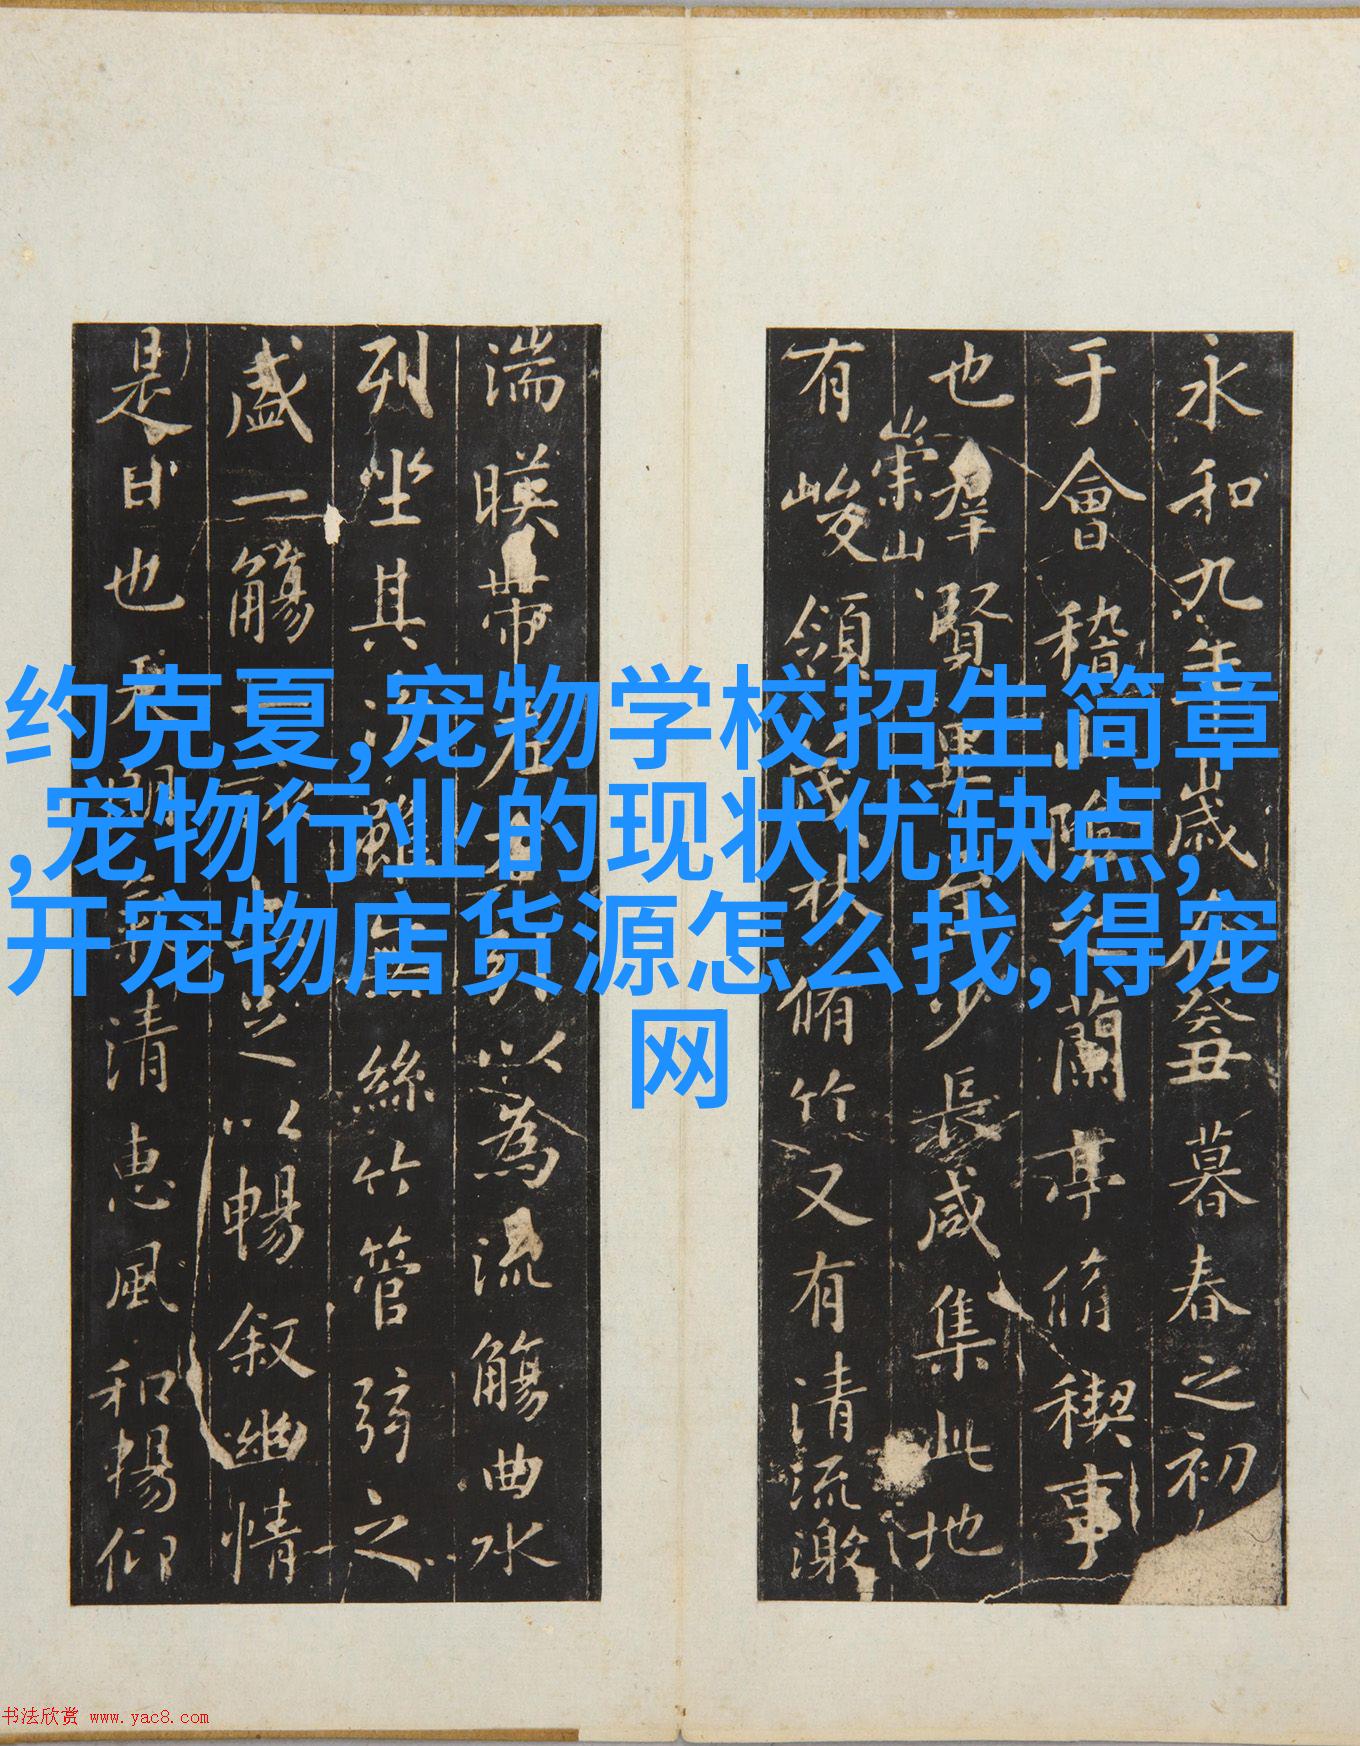 约克夏,宠物学校招生简章
,宠物行业的现状优缺点,
开宠物店货源怎么找,得宠
网
永和九年歲在癸丑暮春之初
于會稽山陰之蘭亭脩稧事
也羣賢畢至少長咸集此地
有崇山峻領茂林脩竹又有清流激
湍暎帶左右引以為流觴曲水
列坐其次雖無絲竹管弦之
盛一觴一詠亦足以暢叙幽情
是日也天朗氣清惠風和暢仰
书法欣赏 www.yac8.com